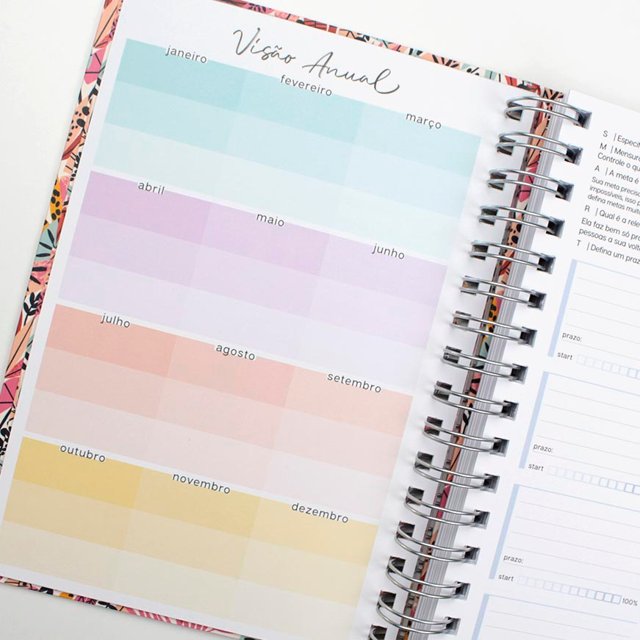 Visão Anual
janeiro
fevereiro
março
abril
maio
junho
julho
agosto
setembro
outubro
novembro
dezembro
S | Especifi
M | Mensura
Controle o qu
A | A meta é
Sua meta precisa
impossíveis, isso p
defina metas muit
R | Qual é a rele
Ela faz bem só pr
pessoas a sua volt
T | Defina um praz
prazo:
start
prazo:
start
prazo:
start 100%